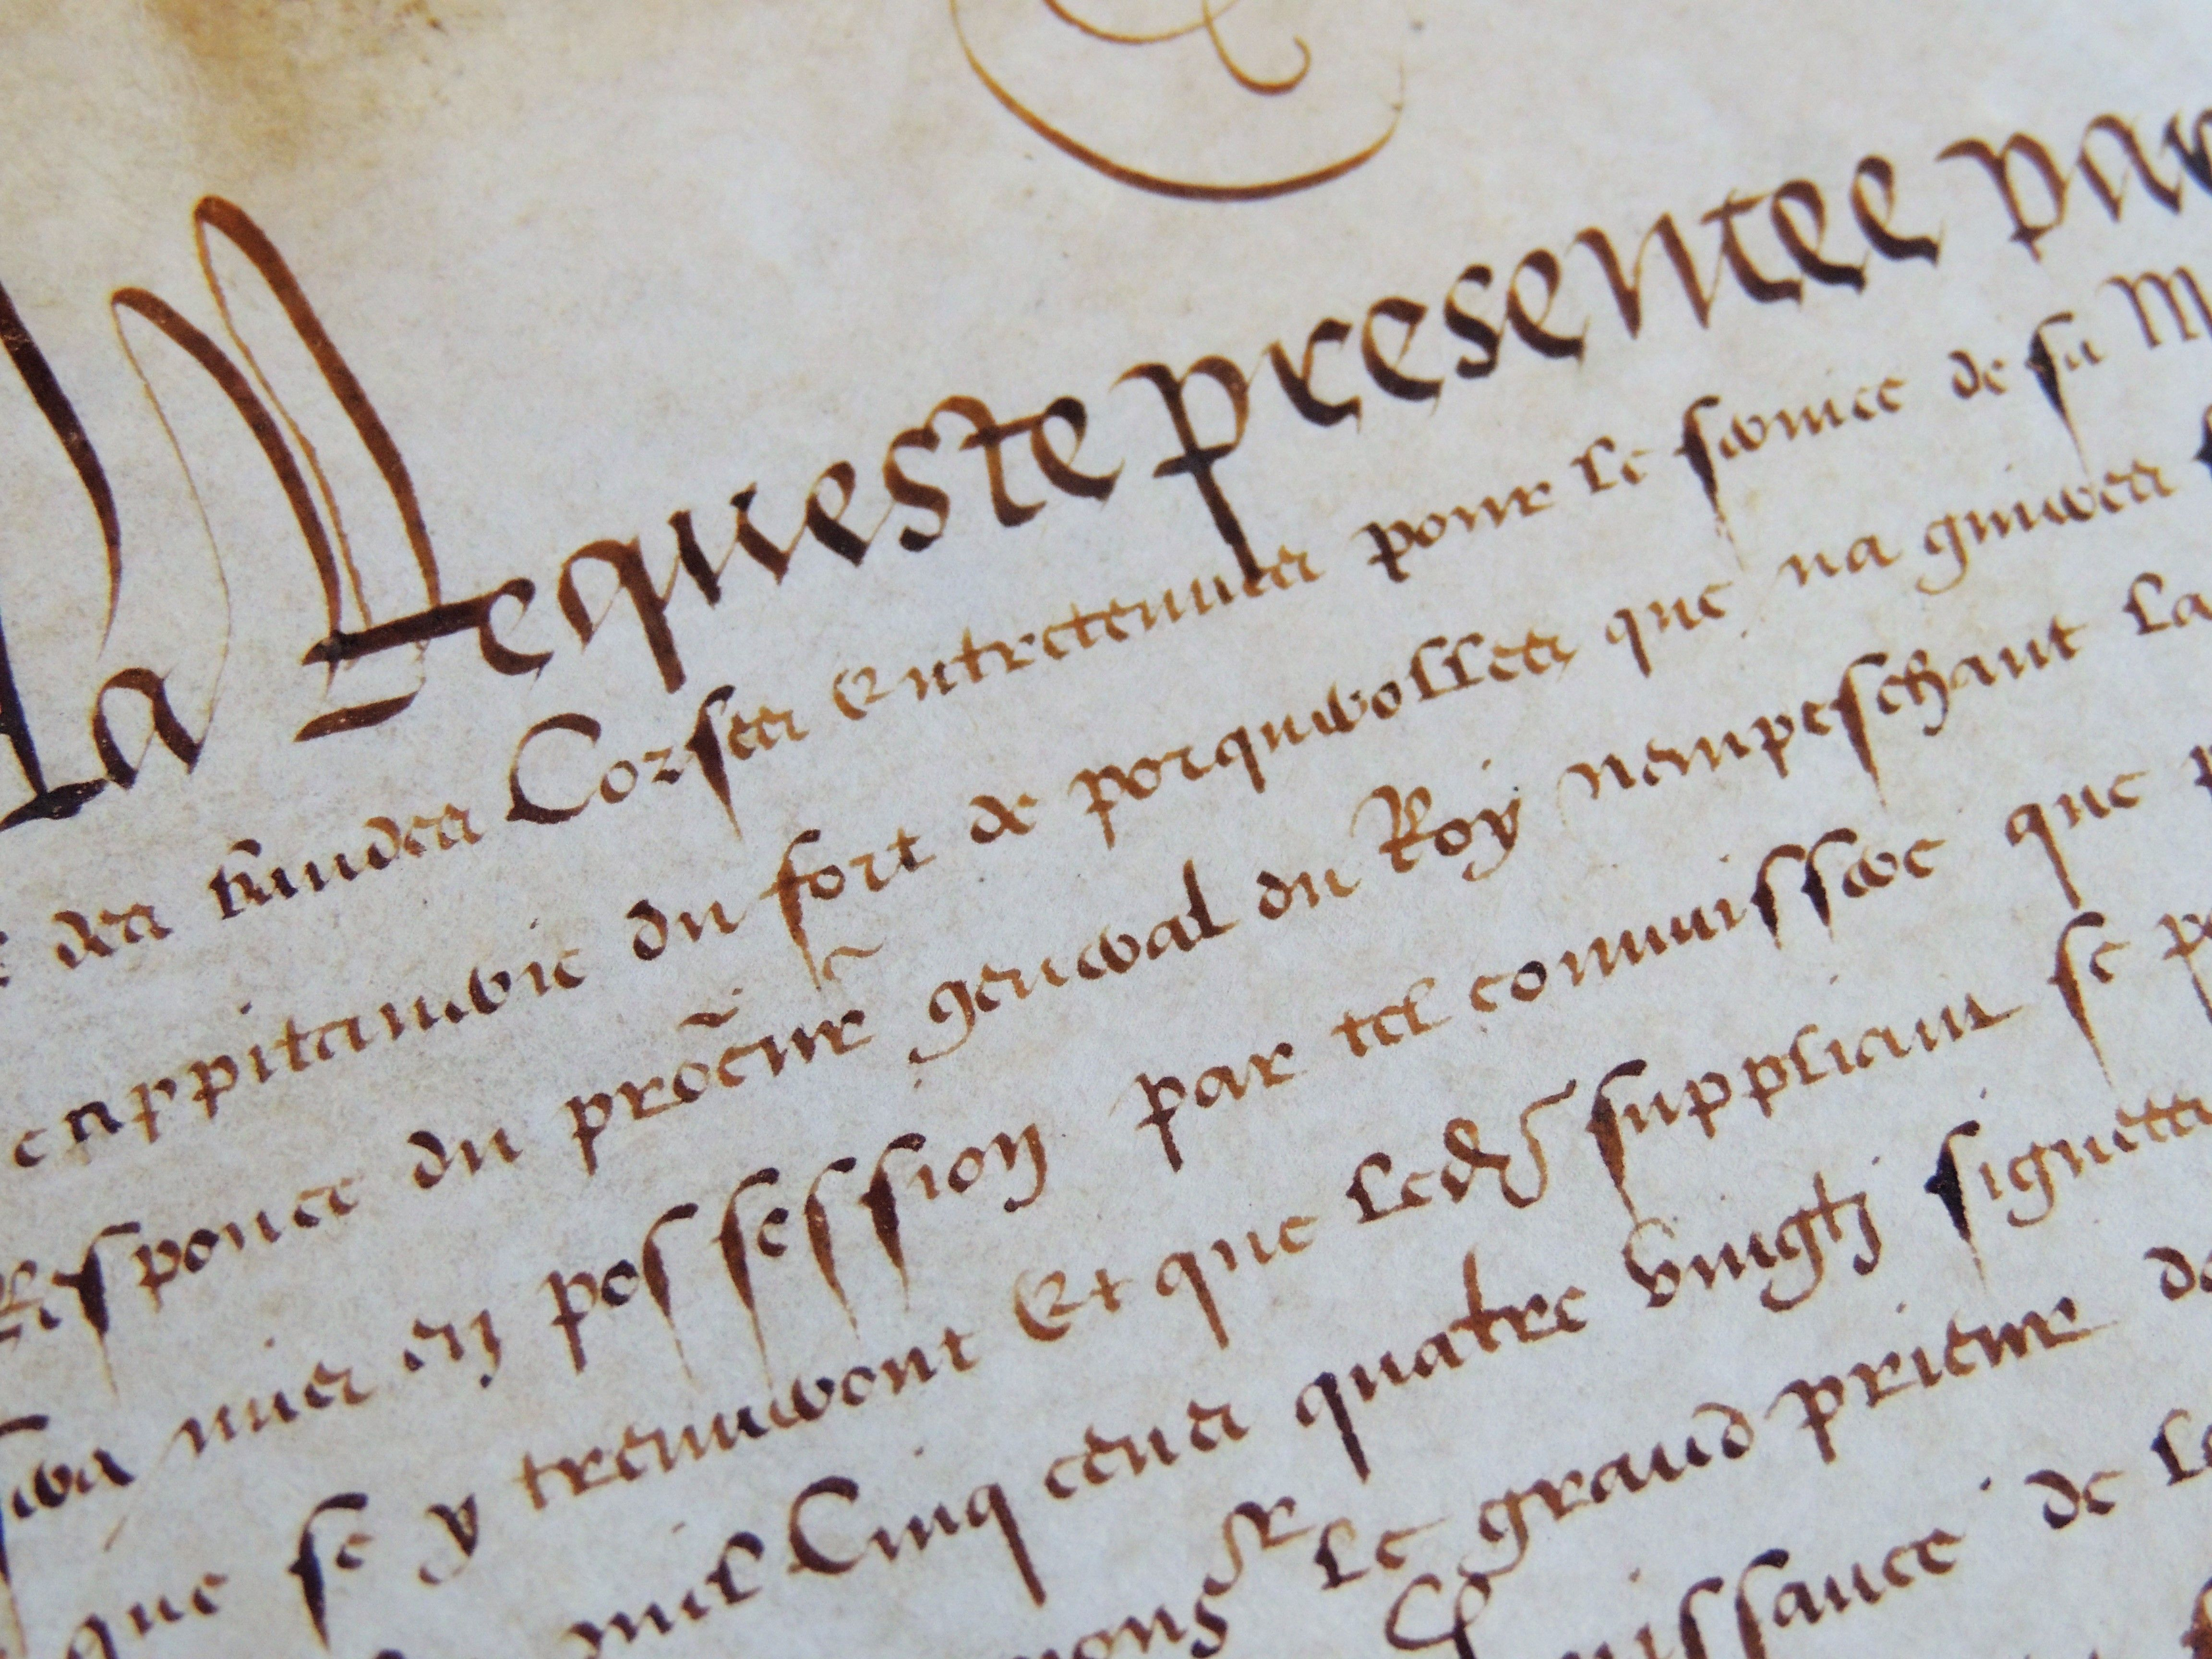 La Requeste presentee par
des bandes Corses Entretenues pour le service de sa M
cappitainerie du fort de porquerolles que na gueres
Responce du procẽur general du Roy nempeschant la
sera mis en possession par tel commissere que
que se y treuveront Et que ledt suppliant se
mil Cinq cens quatre vingtz signee
monsr le grand prieur de
de